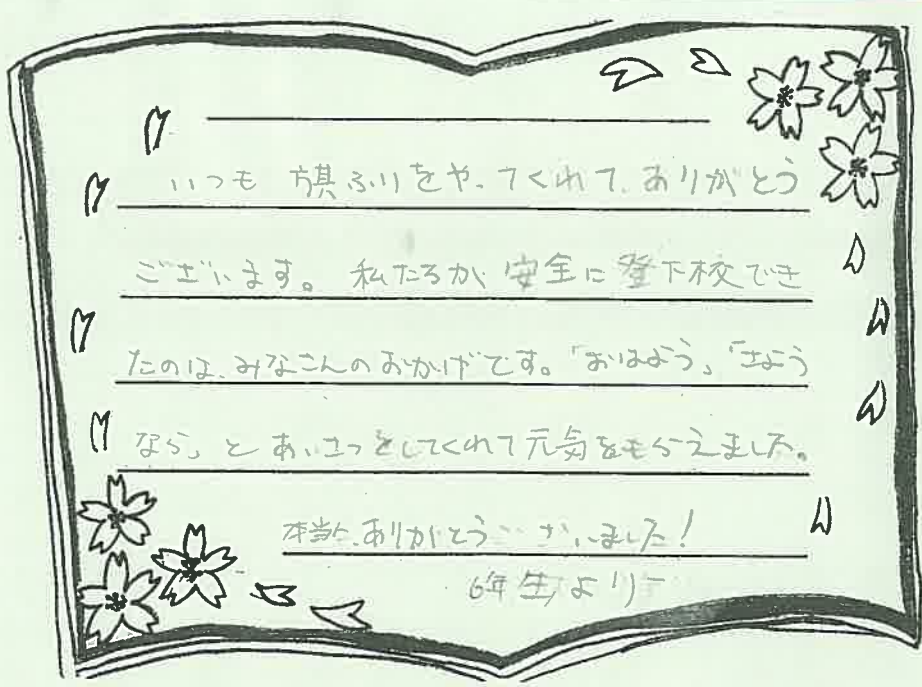 いつも 旗ふりをやってくれて、ありがとう
ございます。 私たちが 安全に 登下校でき
たのは、みなさんのおかげです。「おはよう」「さよう
なら」と あいさつをしてくれて元気をもらえました。
本当に、ありがとうございました!
6年生より